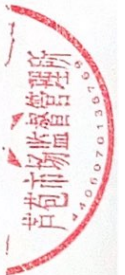 芦苞市场监督管理所
4406070136796